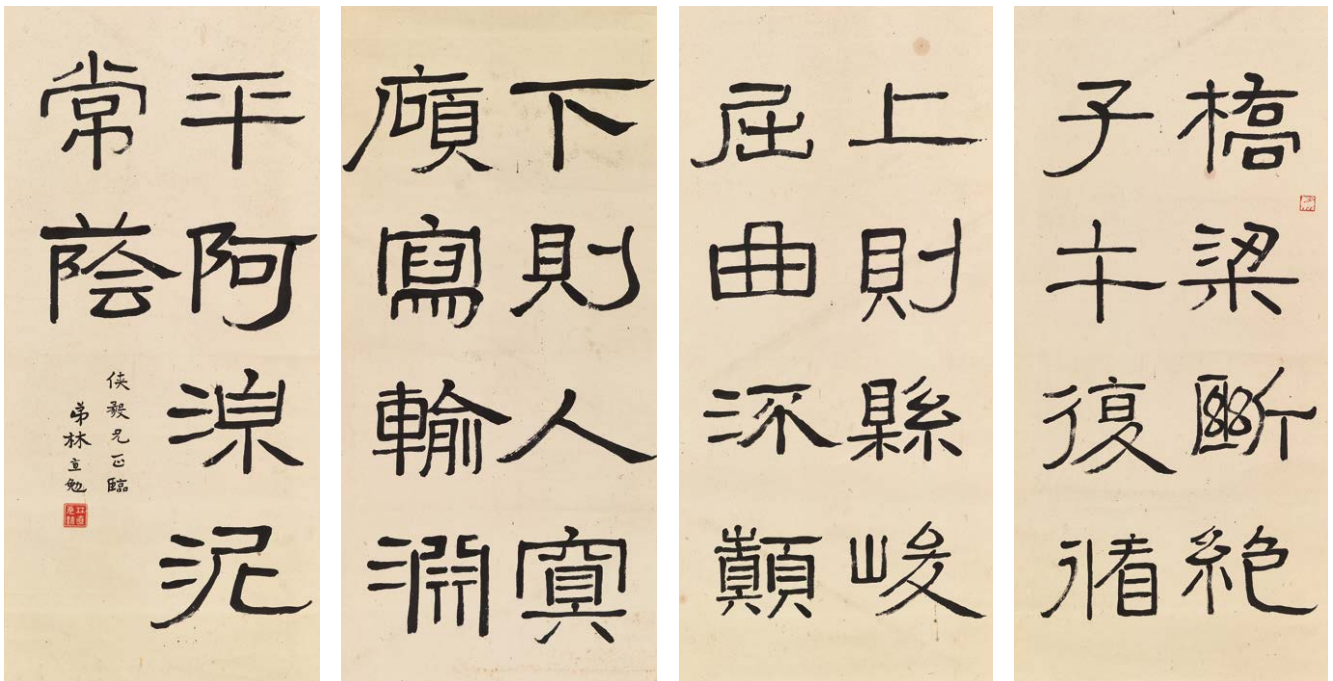 橋梁斷絕
子午復循
上則縣峻
屈曲㳅顛
下則入冥
廎寫輸淵
平阿湶泥
常蔭
俠毅兄正臨
弟林直勉